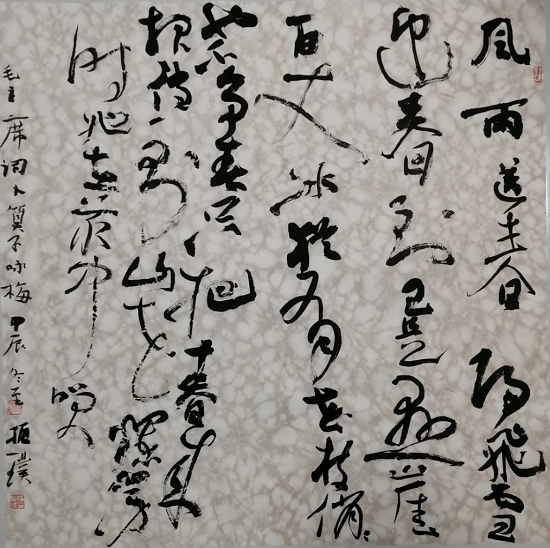 風雨送春归飛雪
迎春到已是悬崖
百丈冰犹有花枝俏々
也不争春只把春来
报待到山花烂漫
时她在丛中笑
毛主席词卜算子咏梅 甲辰冬至